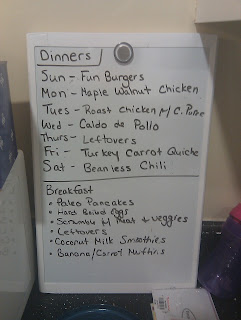 Dinners
Sun - Fun Burgers
Mon - Maple Walnut Chicken
Tues - Roast Chicken w/ C. Puree
Wed - Caldo de Pollo
Thurs - Leftovers
Fri - Turkey Carrot Quiche
Sat - Beanless Chili
Breakfast
• Paleo Pancakes
• Hard Boiled Eggs
• Scrambled w/ Meat + veggies
• Leftovers
• Coconut Milk Smoothies
• Banana/Carrot Muffins